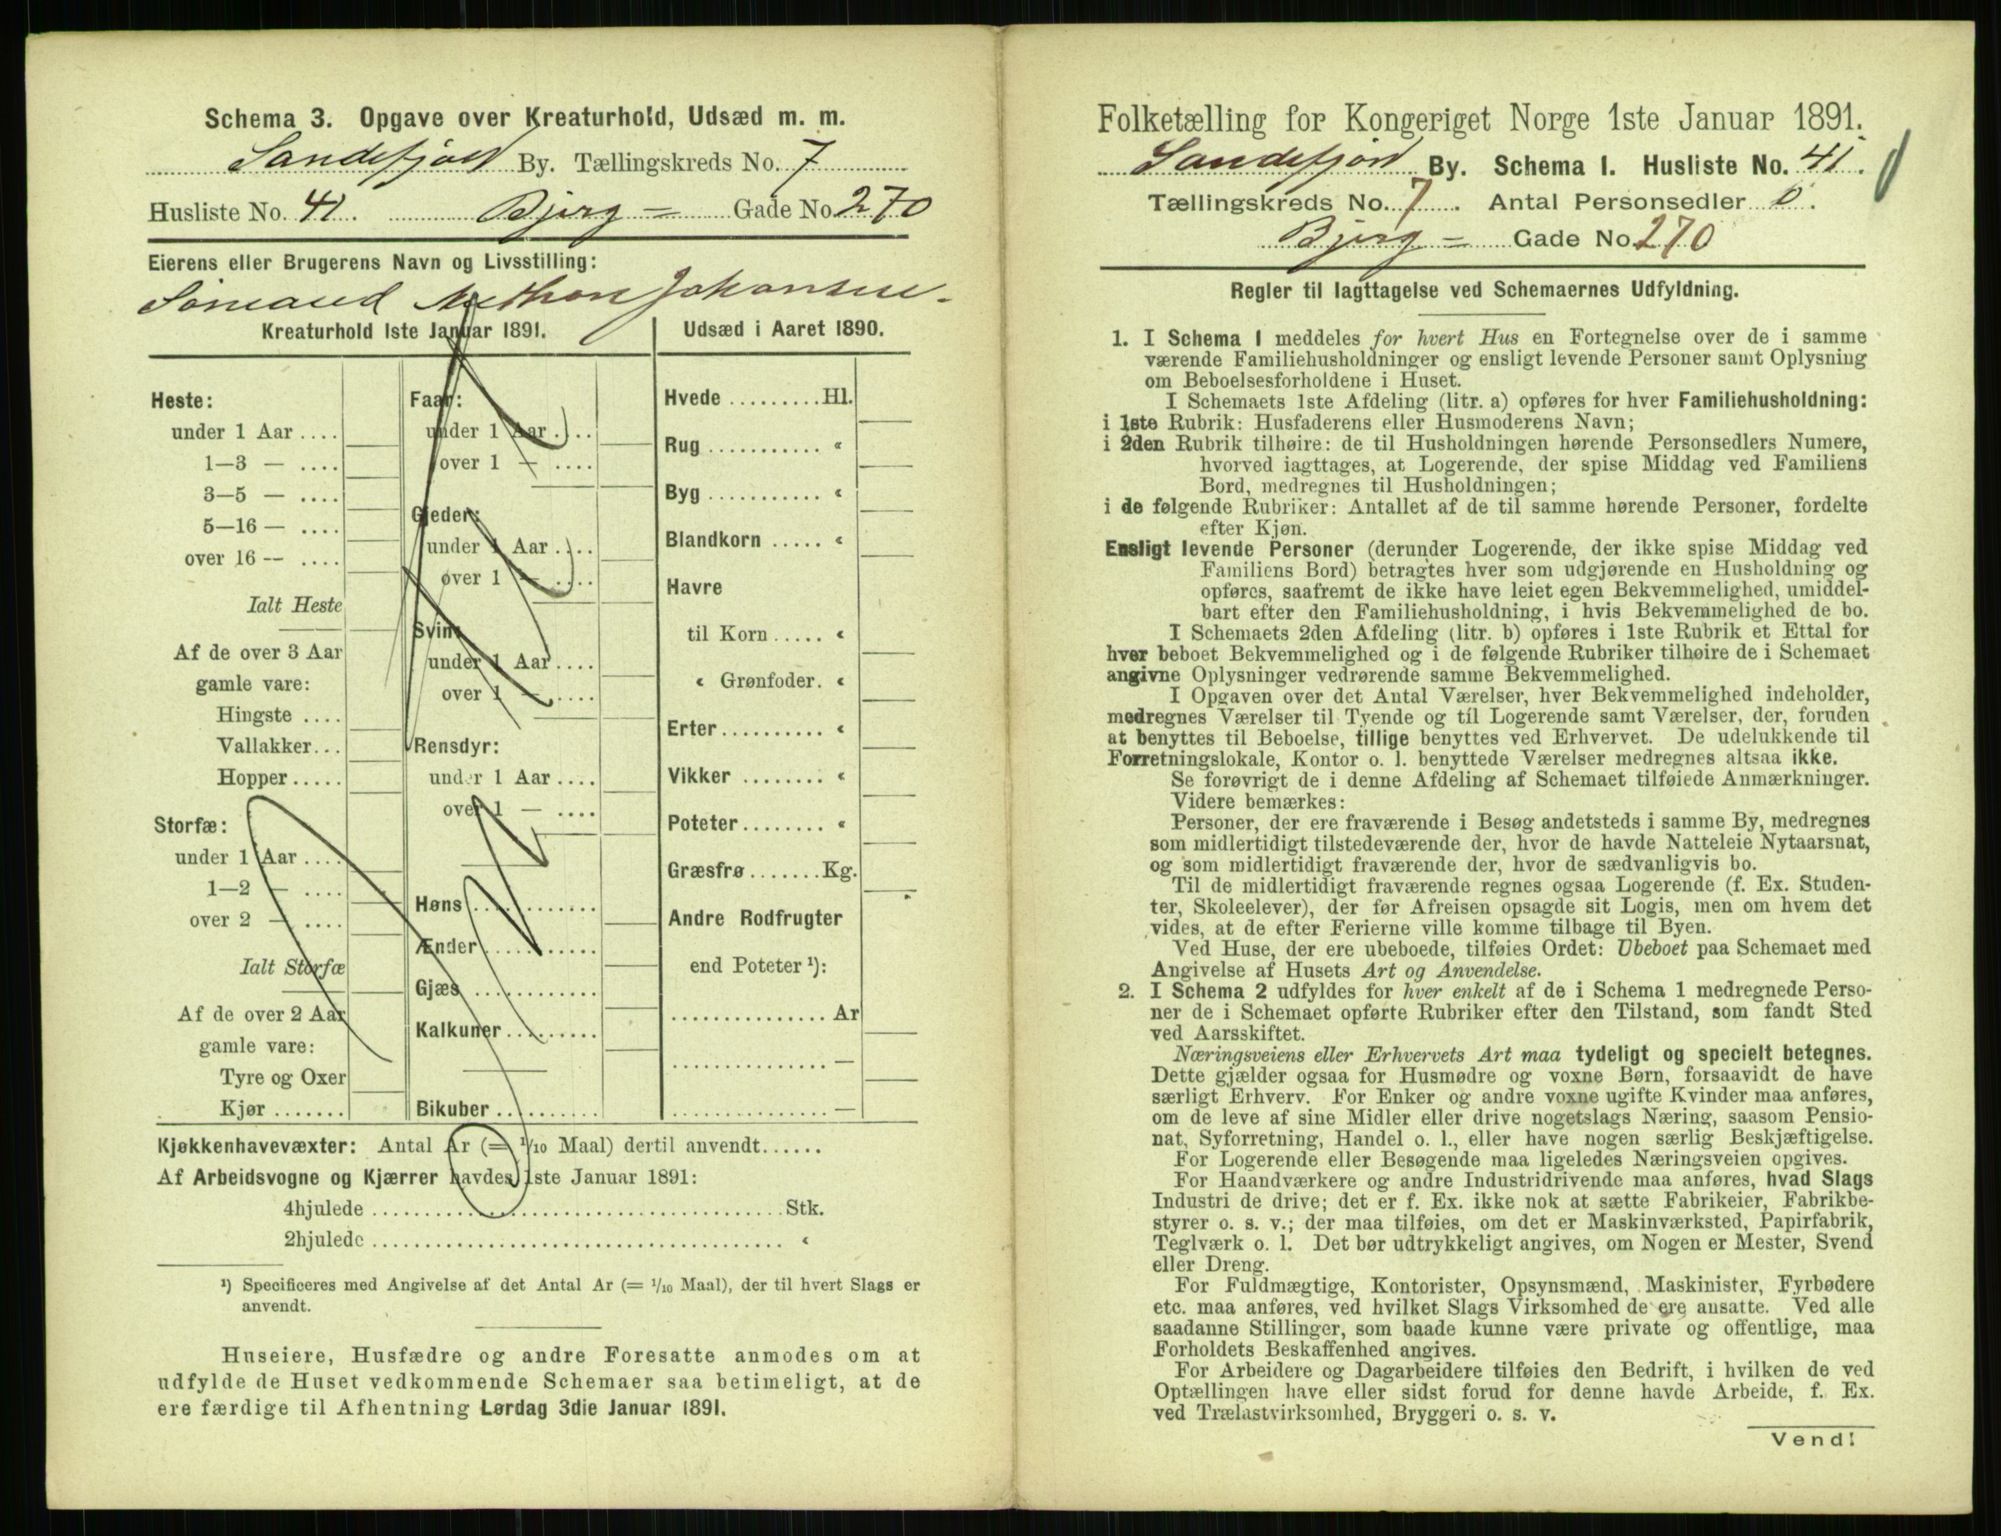 Schema 3. Opgave over Kreaturhold, Udsæd m. m.
Sandefjord By. Tællingskreds No. 7
Husliste No. 41. Bjerg = Gade No. 270
Eierens eller Brugerens Navn og Livsstilling:
Sømand Anthon Johansen
Kreaturhold 1ste Januar 1891.
Heste:
under 1 Aar ....
1—3 — ....
3—5 — ....
5—16 — ....
over 16 — ....
Ialt Heste
Af de over 3 Aar
gamle vare:
Hingste ....
Vallakker...
Hopper.....
Storfæ:
under 1 Aar ....
1—2 — ....
over 2 — ....
Ialt Storfæ
Af de over 2 Aar
gamle vare:
Tyre og Oxer
Kjør .......
Faar:
under 1 Aar ....
over 1 — ....
Gjeder:
under 1 Aar ....
over 1 — ....
Svin:
under 1 Aar ....
over 1 — ....
Rensdyr:
under 1 Aar ....
over 1 — ....
Høns ............
Ænder ...........
Gjæs ............
Kalkuner ........
Bikuber ..........
Udsæd i Aaret 1890.
Hvede .........Hl.
Rug ........... «
Byg ........... «
Blandkorn ..... «
Havre
til Korn ..... «
« Grønfoder. «
Erter.......... «
Vikker ........ «
Poteter........ «
Græsfrø .......Kg.
Andre Rodfrugter
end Poteter ¹):
............... Ar
............... —
............... —
Kjøkkenhavevæxter: Antal Ar (= 1/10 Maal) dertil anvendt......
Af Arbeidsvogne og Kjærrer havdes 1ste Januar 1891:
4hjulede ........................................ Stk.
2hjulede ........................................ «
¹) Specificeres med Angivelse af det Antal Ar (= 1/10 Maal), der til hvert Slags er
anvendt.
Huseiere, Husfædre og andre Foresatte anmodes om at
udfylde de Huset vedkommende Schemaer saa betimeligt, at de
ere færdige til Afhentning Lørdag 3die Januar 1891.
Folketælling for Kongeriget Norge 1ste Januar 1891.
Sandefjord By. Schema 1. Husliste No. 41.
Tællingskreds No. 7. Antal Personsedler 0.
Bjerg = Gade No. 270
Regler til Iagttagelse ved Schemaernes Udfyldning.
1. I Schema 1 meddeles for hvert Hus en Fortegnelse over de i samme
værende Familiehusholdninger og ensligt levende Personer samt Oplysning
om Beboelsesforholdene i Huset.
I Schemaets 1ste Afdeling (litr. a) opføres for hver Familiehusholdning:
i 1ste Rubrik: Husfaderens eller Husmoderens Navn;
i 2den Rubrik tilhøire: de til Husholdningen hørende Personsedlers Numere,
hvorved iagttages, at Logerende, der spise Middag ved Familiens
Bord, medregnes til Husholdningen;
i de følgende Rubriker: Antallet af de til samme hørende Personer, fordelte
efter Kjøn.
Ensligt levende Personer (derunder Logerende, der ikke spise Middag ved
Familiens Bord) betragtes hver som udgjørende en Husholdning og
opføres, saafremt de ikke have leiet egen Bekvemmelighed, umiddel-
bart efter den Familiehusholdning, i hvis Bekvemmelighed de bo.
I Schemaets 2den Afdeling (litr. b) opføres i 1ste Rubrik et Ettal for
hver beboet Bekvemmelighed og i de følgende Rubriker tilhøire de i Schemaet
angivne Oplysninger vedrørende samme Bekvemmelighed.
I Opgaven over det Antal Værelser, hver Bekvemmelighed indeholder,
medregnes Værelser til Tyende og til Logerende samt Værelser, der, foruden
at benyttes til Beboelse, tillige benyttes ved Erhvervet. De udelukkende til
Forretningslokale, Kontor o. l. benyttede Værelser medregnes altsaa ikke.
Se forøvrigt de i denne Afdeling af Schemaet tilføiede Anmærkninger.
Videre bemærkes:
Personer, der ere fraværende i Besøg andetsteds i samme By, medregnes
som midlertidigt tilstedeværende der, hvor de havde Natteleie Nytaarsnat,
og som midlertidigt fraværende der, hvor de sædvanligvis bo.
Til de midlertidigt fraværende regnes ogsaa Logerende (f. Ex. Studen-
ter, Skoleelever), der før Afreisen opsagde sit Logis, men om hvem det
vides, at de efter Ferierne ville komme tilbage til Byen.
Ved Huse, der ere ubeboede, tilføies Ordet: Ubeboet paa Schemaet med
Angivelse af Husets Art og Anvendelse.
2. I Schema 2 udfyldes for hver enkelt af de i Schema 1 medregnede Perso-
ner de i Schemaet opførte Rubriker efter den Tilstand, som fandt Sted
ved Aarsskiftet.
Næringsveiens eller Erhvervets Art maa tydeligt og specielt betegnes.
Dette gjælder ogsaa for Husmødre og voxne Børn, forsaavidt de have
særligt Erhverv. For Enker og andre voxne ugifte Kvinder maa anføres,
om de leve af sine Midler eller drive nogetslags Næring, saasom Pensio-
nat, Syforretning, Handel o. l., eller have nogen særlig Beskjæftigelse.
For Logerende eller Besøgende maa ligeledes Næringsveien opgives.
For Haandværkere og andre Industridrivende maa anføres, hvad Slags
Industri de drive; det er f. Ex. ikke nok at sætte Fabrikeier, Fabrikbe-
styrer o. s. v.; der maa tilføies, om det er Maskinværksted, Papirfabrik,
Teglværk o. l. Det bør udtrykkeligt angives, om Nogen er Mester, Svend
eller Dreng.
For Fuldmægtige, Kontorister, Opsynsmænd, Maskinister, Fyrbødere
etc. maa anføres, ved hvilket Slags Virksomhed de ere ansatte. Ved alle
saadanne Stillinger, som baade kunne være private og offentlige, maa
Forholdets Beskaffenhed angives.
For Arbeidere og Dagarbeidere tilføies den Bedrift, i hvilken de ved
Optællingen have eller sidst forud for denne havde Arbeide, f. Ex.
ved Trælastvirksomhed, Bryggeri o. s. v.
Vend!